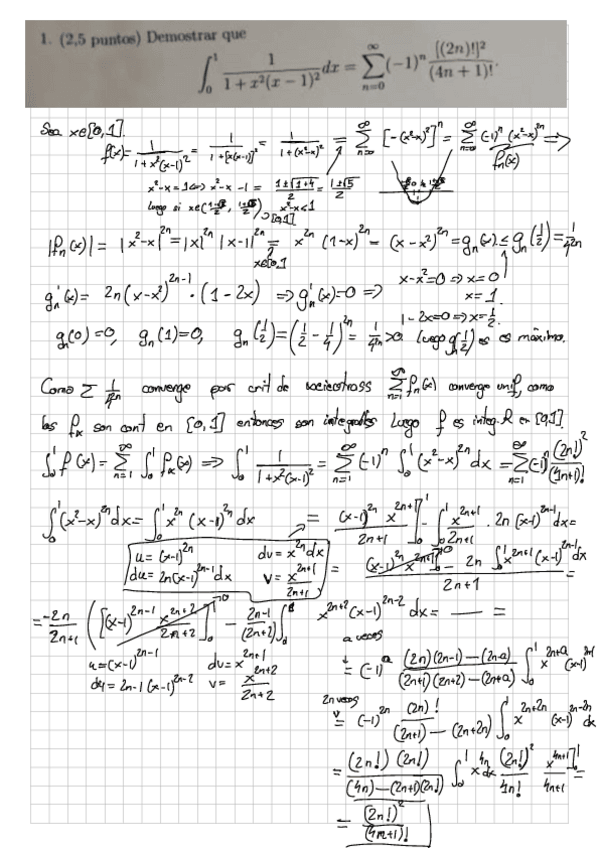 1. (2,5 puntos) Demostrar que
∫₀¹ 1/(1+x²(x−1)²) dx = Σ_{n=0}^{∞} (−1)ⁿ [(2n)!]²/(4n+1)!.
Sea x∈[0,1].
f(x) = 1/(1+x²(x-1)²) = 1/(1+[x(x-1)]²) = 1/(1+(x²-x)²) = Σ_{n=0}^{∞} [-(x²-x)²]ⁿ = Σ_{n=0}^{∞} (-1)ⁿ (x²-x)^{2n} ⟹
fₙ(x)
x²-x=1 ⟺ x²-x-1 = (1±√(1+4))/2 = (1±√5)/2
luego si x∈((1-√5)/2, (1+√5)/2) ⊃ [0,1] x²-x<1
|fₙ(x)| = |x²-x|^{2n} = |x|^{2n} |x-1|^{2n} = x^{2n} (1-x)^{2n} = (x-x²)^{2n} = gₙ(x) ≤ gₙ(1/2) = 1/4^{2n}
x∈[0,1]
gₙ'(x) = 2n(x-x²)^{2n-1} · (1-2x) ⟹ gₙ'(x)=0 ⟹
x-x²=0 ⟹ x=0
x=1
1-2x=0 ⟹ x=1/2
gₙ(0)=0, gₙ(1)=0, gₙ(1/2) = (1/2 - 1/4)^{2n} = 1/4^{2n} >0 luego g(1/2) es máximo.
Como Σ 1/4^{2n} converge por crit de Σ_{n=1}^{∞} fₙ(x) converge unif, como
las fₙ son cont en [0,1] entonces son integrables luego f es integ. R en [0,1].
∫₀¹ f(x) = Σ_{n=1}^{∞} ∫₀¹ fₙ(x) ⟹ ∫₀¹ 1/(1+x²(x-1)²) = Σ_{n=1}^{∞} (-1)ⁿ ∫₀¹ (x²-x)^{2n} dx = Σ_{n=1}^{∞} (-1)ⁿ (2n!)²/(4n+1)!
∫₀¹ (x²-x)^{2n} dx = ∫₀¹ x^{2n} (x-1)^{2n} dx = (x-1)^{2n} x^{2n+1}/(2n+1) ]₀¹ - ∫₀¹ x^{2n+1}/(2n+1) · 2n (x-1)^{2n-1} dx =
u = (x-1)^{2n} dv = x^{2n} dx
du = 2n(x-1)^{2n-1} dx v = x^{2n+1}/(2n+1)
= ((x-1)^{2n} x^{2n+1} ]₀¹ →0 - 2n ∫₀¹ x^{2n+1} (x-1)^{2n-1} dx)/(2n+1) =
= -2n/(2n+1) ( [(x-1)^{2n-1} x^{2n+2}/(2n+2) ]₀¹ →0 - (2n-1)/(2n+2) ∫₀¹ x^{2n+2} (x-1)^{2n-2} dx = —— =
u = (x-1)^{2n-1} dv = x^{2n+1}
du = 2n-1 (x-1)^{2n-2} v = x^{2n+2}/(2n+2)
a veces
= (-1)^a (2n)(2n-1)—(2n-a)/((2n+1)(2n+2)—(2n+a)) ∫₀¹ x^{2n+a} (x-1)
2n veces
= (-1)^{2n} (2n)!/((2n+1)—(2n+2n)) ∫₀¹ x^{2n+2n} (x-1)^{2n-2n} dx
= (2n!)(2n!)/((4n)—(2n+1)(2n!)) ∫₀¹ x^{4n} dx (2n!)²/4n! x^{4n+1}/(4n+1) ]₀¹ =
= (2n!)²/(4n+1)!